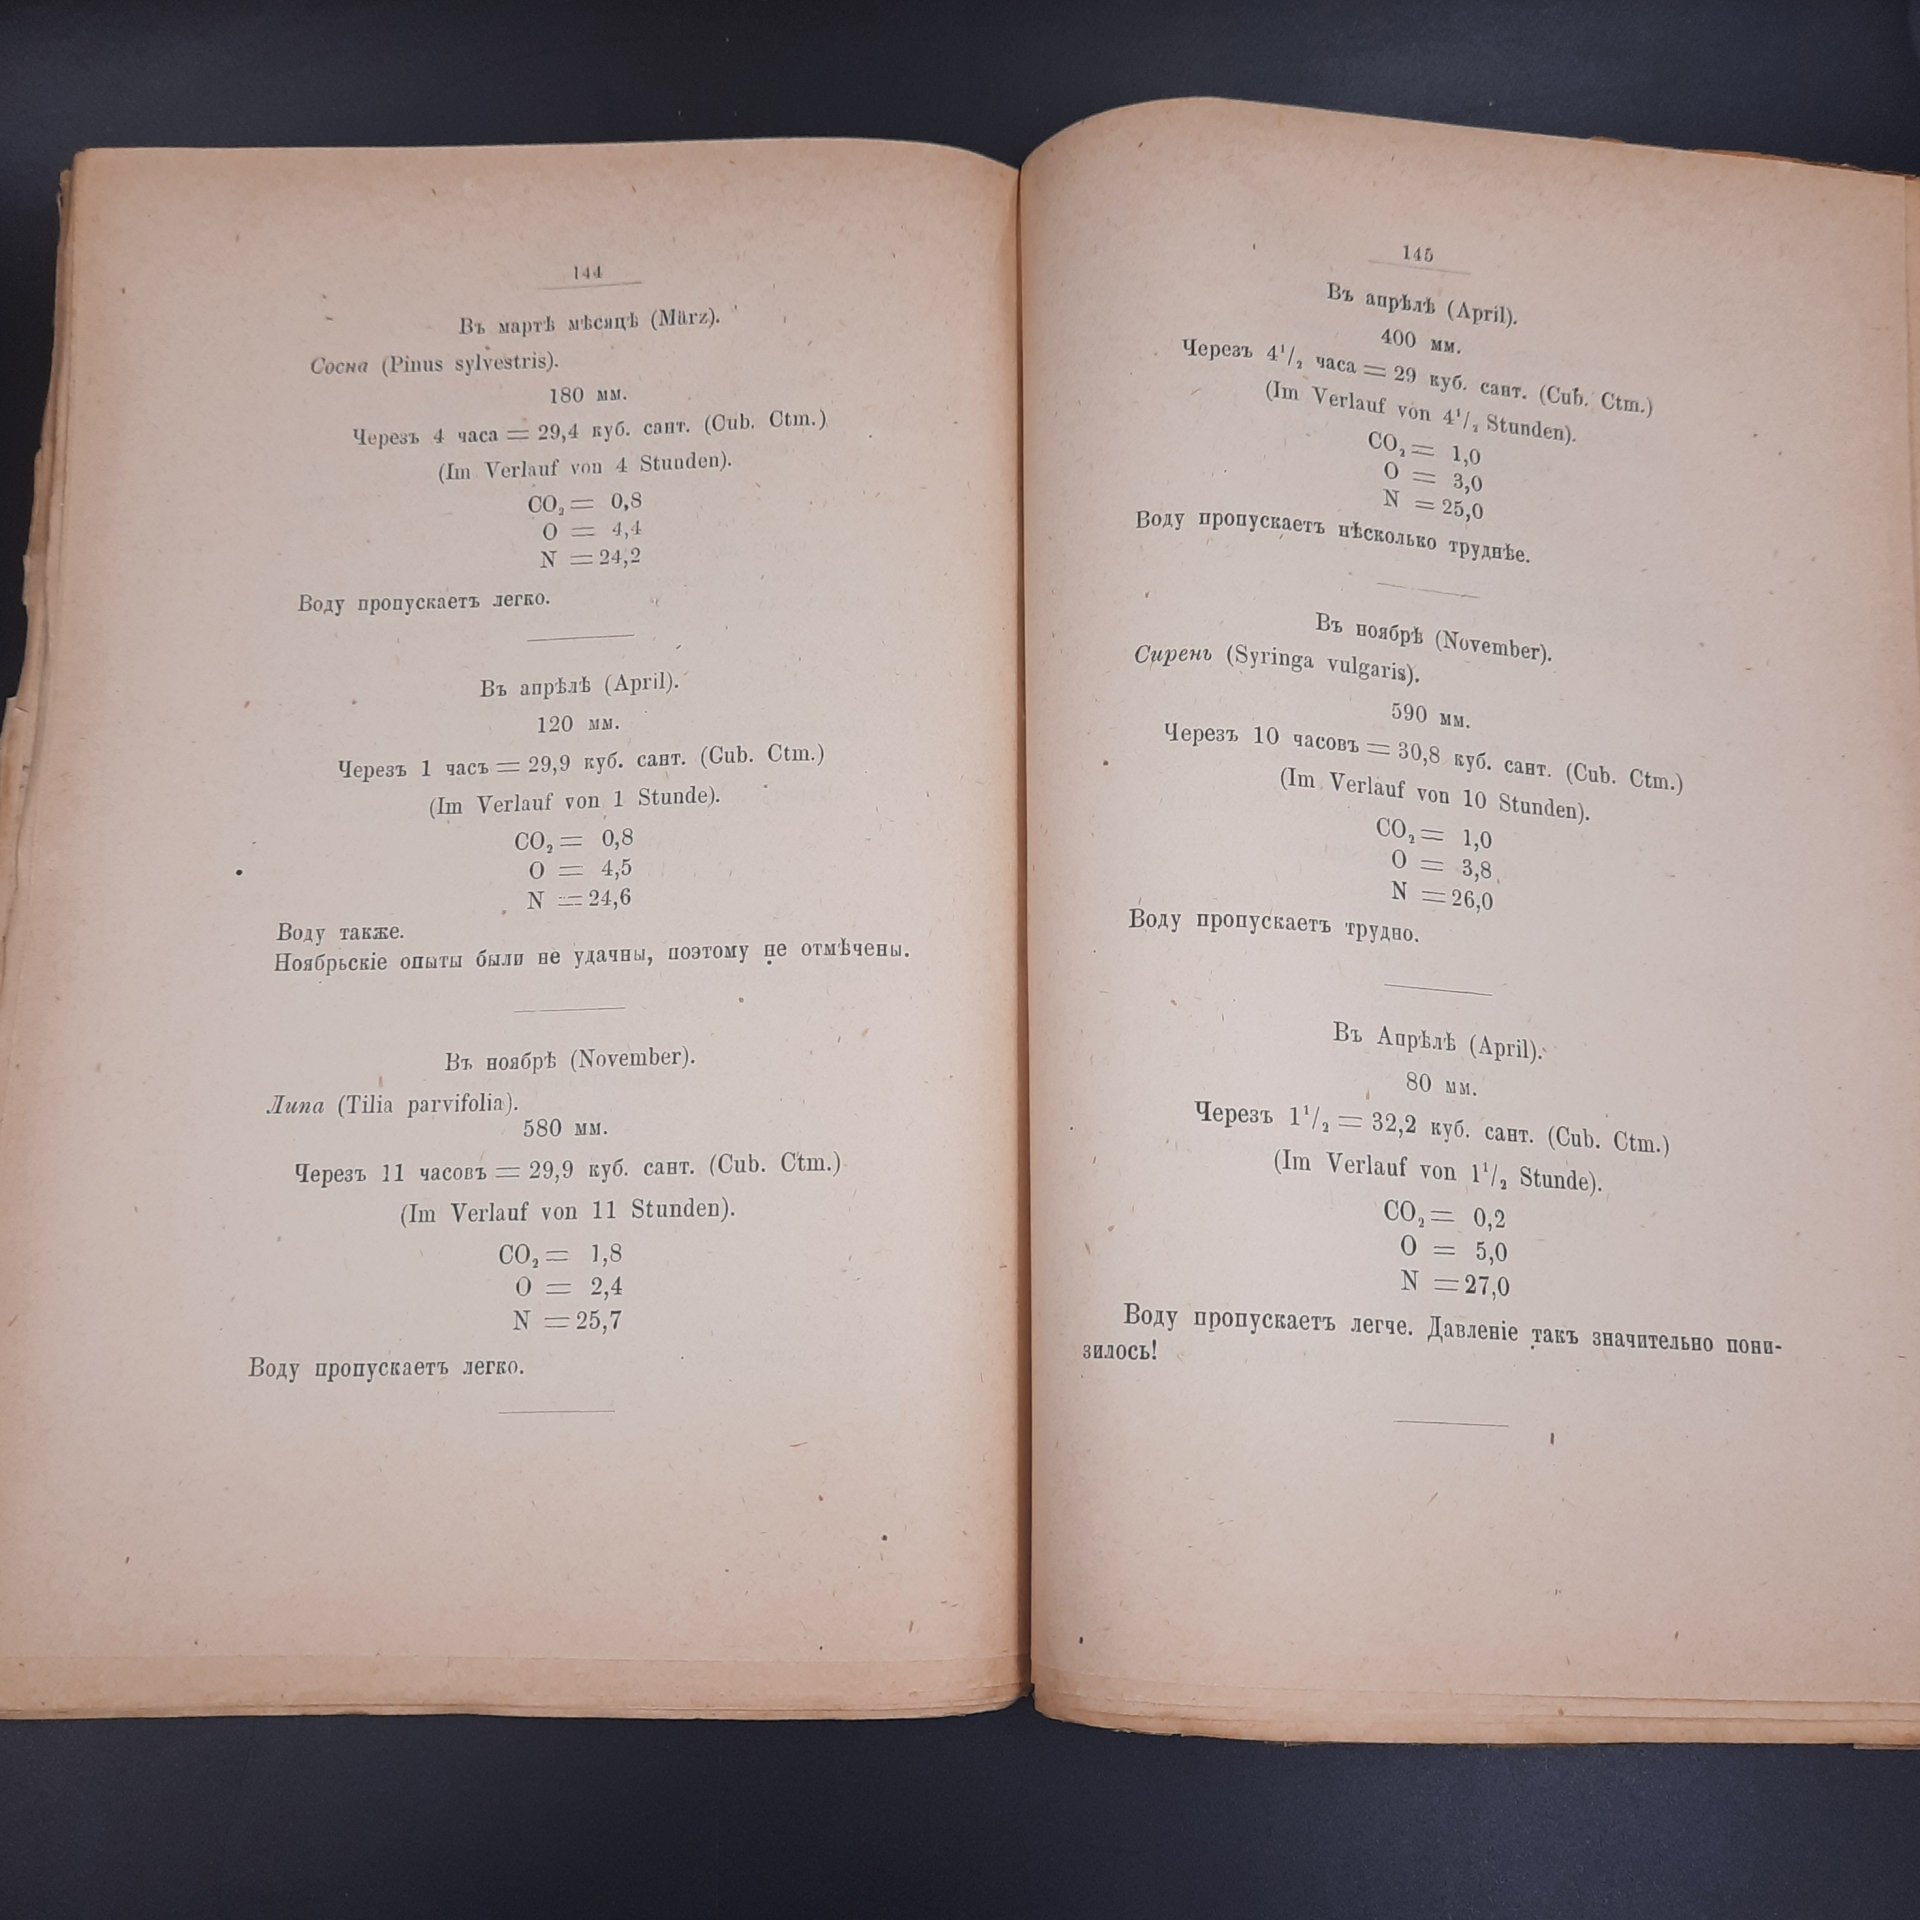 144
Въ мартѣ мѣсяцѣ (März).
Сосна (Pinus sylvestris).
180 мм.
Черезъ 4 часа = 29,4 куб. сант. (Cub. Ctm.)
(Im Verlauf von 4 Stunden).
CO₂ = 0,8
O = 4,4
N = 24,2
Воду пропускаетъ легко.
Въ апрѣлѣ (April).
120 мм.
Черезъ 1 часъ = 29,9 куб. сант. (Cub. Ctm.)
(Im Verlauf von 1 Stunde).
CO₂ = 0,8
O = 4,5
N = 24,6
Воду также.
Ноябрьскіе опыты были не удачны, поэтому не отмѣчены.
Въ ноябрѣ (November).
Липа (Tilia parvifolia).
580 мм.
Черезъ 11 часовъ = 29,9 куб. сант. (Cub. Ctm.)
(Im Verlauf von 11 Stunden).
CO₂ = 1,8
O = 2,4
N = 25,7
Воду пропускаетъ легко.
145
Въ апрѣлѣ (April).
400 мм.
Черезъ 4¹/₂ часа = 29 куб. сант. (Cub. Ctm.)
(Im Verlauf von 4¹/₂ Stunden).
CO₂ = 1,0
O = 3,0
N = 25,0
Воду пропускаетъ нѣсколько труднѣе.
Въ ноябрѣ (November).
Сирень (Syringa vulgaris).
590 мм.
Черезъ 10 часовъ = 30,8 куб. сант. (Cub. Ctm.)
(Im Verlauf von 10 Stunden).
CO₂ = 1,0
O = 3,8
N = 26,0
Воду пропускаетъ трудно.
Въ Апрѣлѣ (April).
80 мм.
Черезъ 1¹/₂ = 32,2 куб. сант. (Cub. Ctm.)
(Im Verlauf von 1¹/₂ Stunde).
CO₂ = 0,2
O = 5,0
N = 27,0
Воду пропускаетъ легче. Давленіе такъ значительно пони-
зилось!